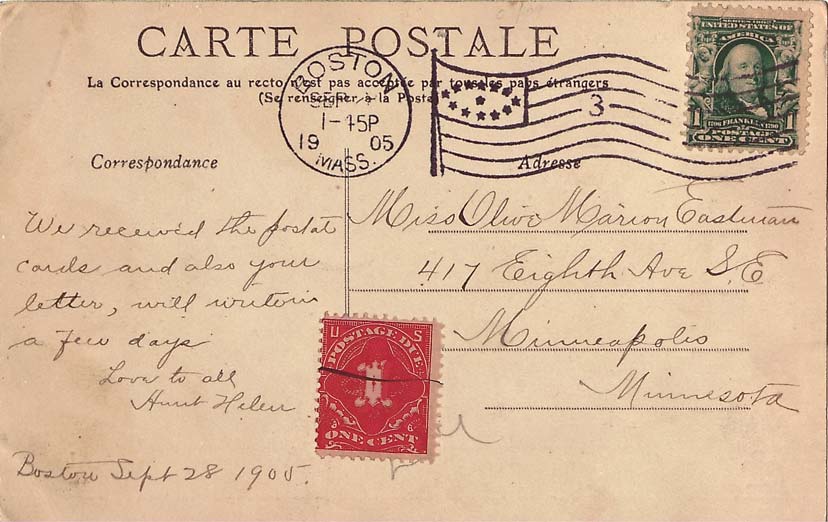 CARTE POSTALE
La Correspondance au recto n'est pas acceptée par tous les pays étrangers
(Se renseigner à la Poste)
BOSTON
SEP
1-45P
19 05
MASS.
3
SERIES 1902
UNITED STATES OF AMERICA
1 1790 FRANKLIN 1790 1
POSTAGE
ONE CENT
Correspondance
Adresse
We received the postal
cards and also your
letter, will write in
a few days
Love to all
Aunt Helen
Boston Sept 28 1905.
Miss Olive Marion Eastman
417 Eighth Ave S.E
Minneapolis
Minnesota
U S
POSTAGE DUE
1
ONE CENT